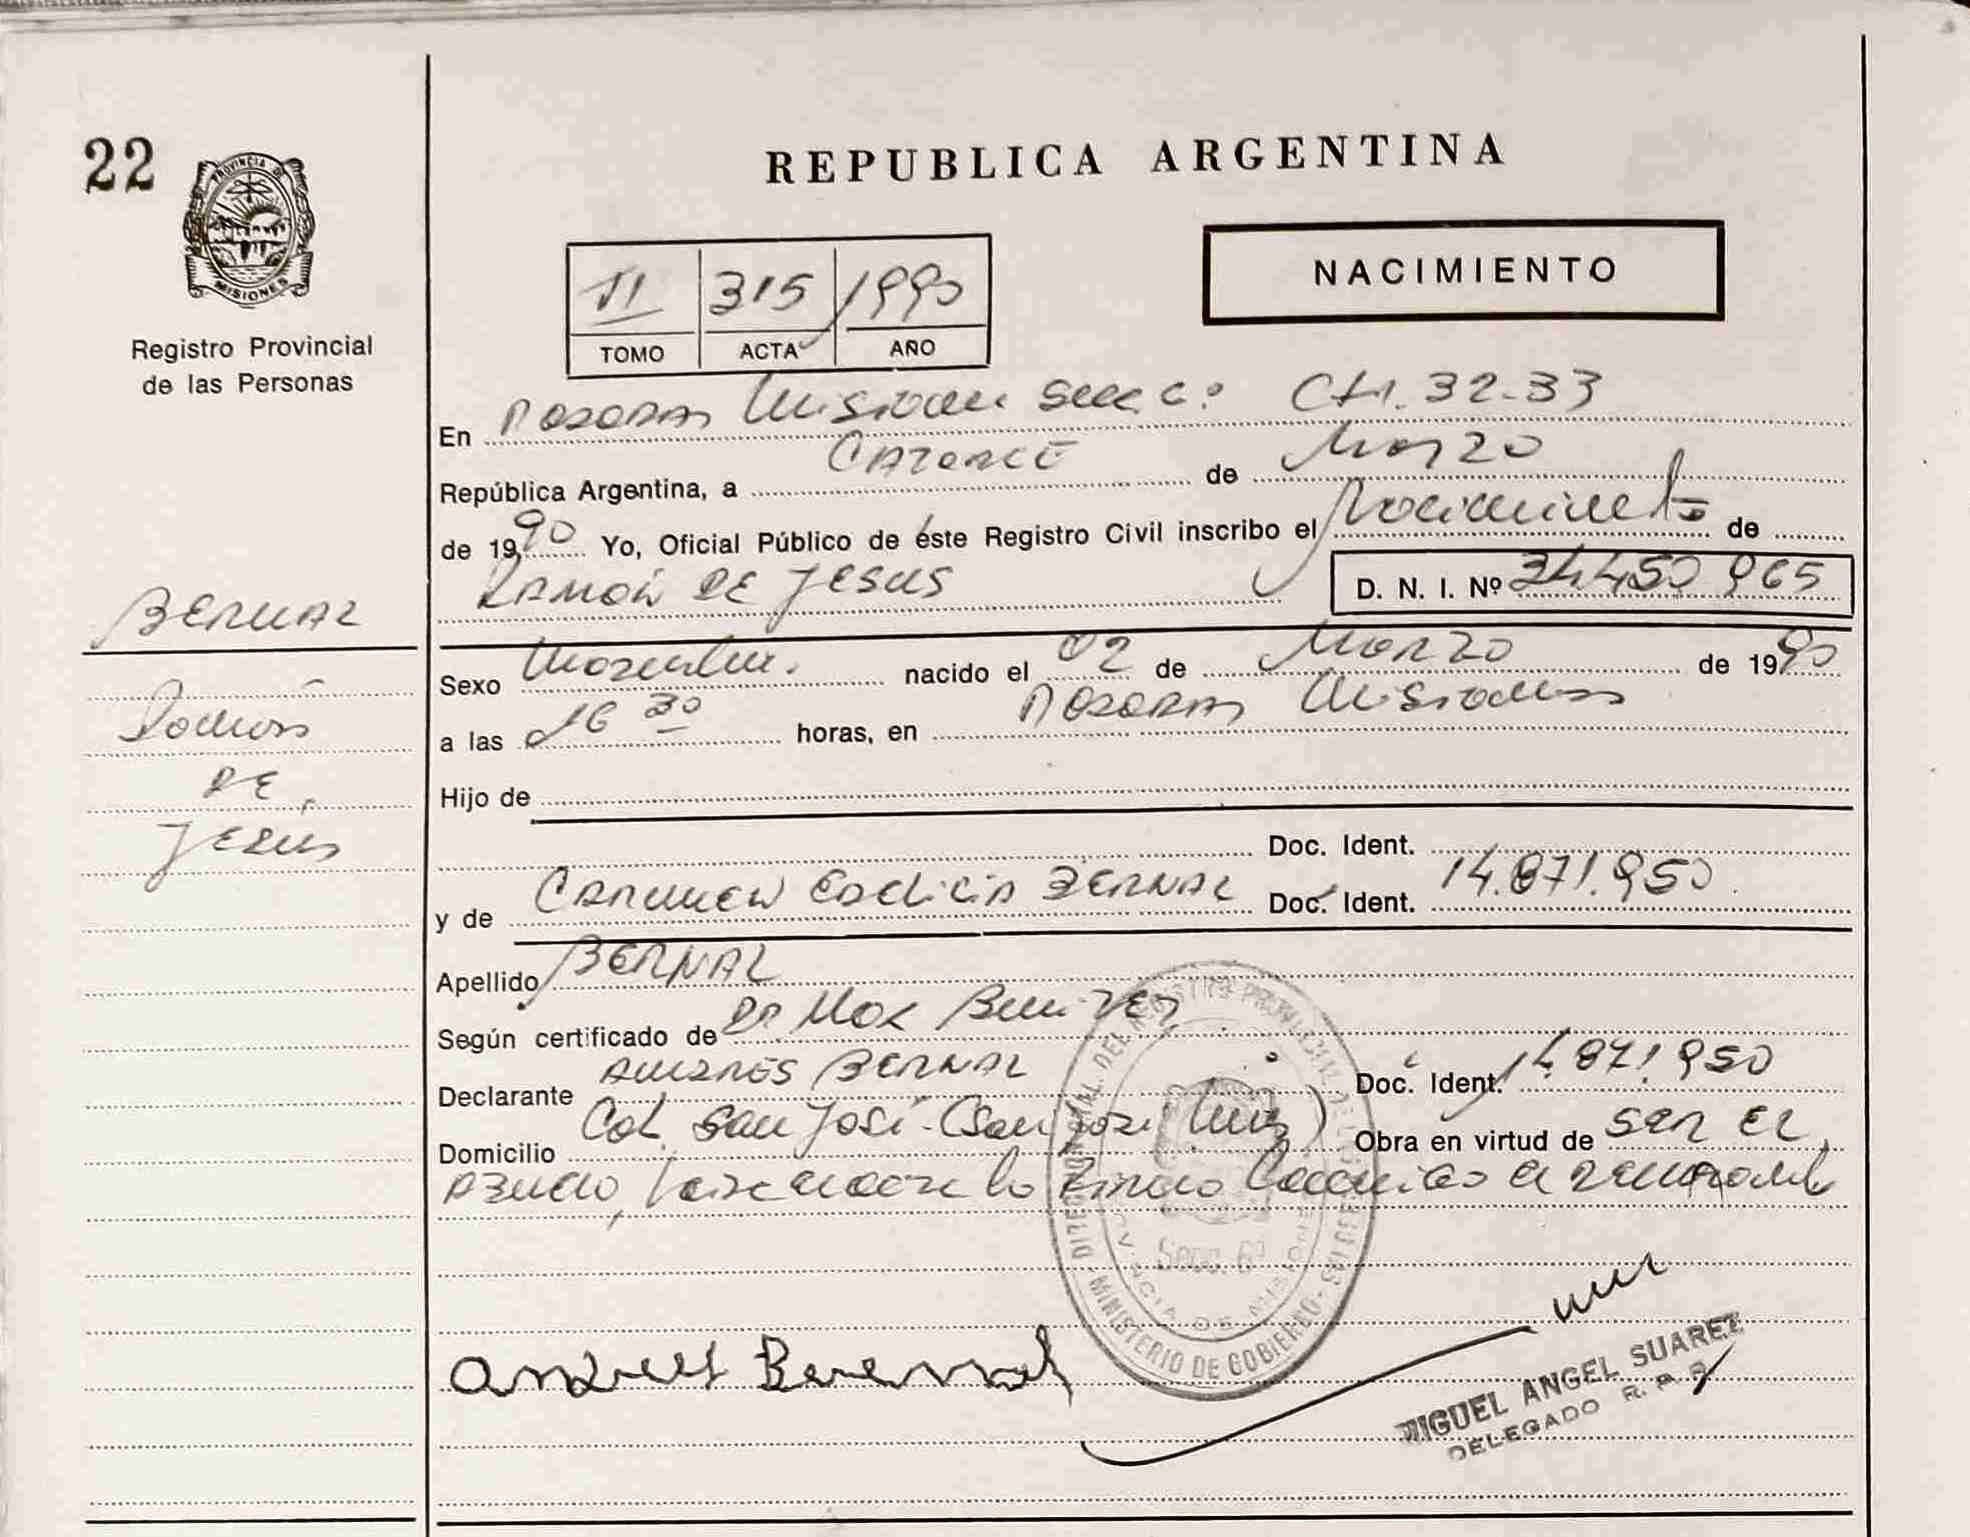 22
PROVINCIA DE
MISIONES
Registro Provincial
de las Personas
REPUBLICA ARGENTINA
NACIMIENTO
II 315 1990
TOMO ACTA AÑO
En Posadas Misiones Secc. 6º Ch. 32-33
República Argentina, a CATORCE de Marzo
de 1990 Yo, Oficial Público de éste Registro Civil inscribo el Nacimiento de
RAMÓN DE JESUS D. N. I. Nº 34.450.965
BERNAL
Ramón
DE
Jesús
Sexo Masculino. nacido el 02 de Marzo de 1990
a las 16 30 horas, en POSADAS Misiones
Hijo de
Doc. Ident.
y de CARMEN EDELICIA BERNAL Doc. Ident. 14.871.950
Apellido BERNAL
Según certificado de Dr Max Benitez
Declarante ANDRES BERNAL Doc. Ident. 14.871.950
Domicilio Col. San José - (San José Mnes) Obra en virtud de SER EL
ABUELO, lo
Secc. 6º
PROVINCIA DE MISIONES
MINISTERIO DE GOBIERNO
Andres Berernal
MIGUEL ANGEL SUAREZ
DELEGADO R. P. P.